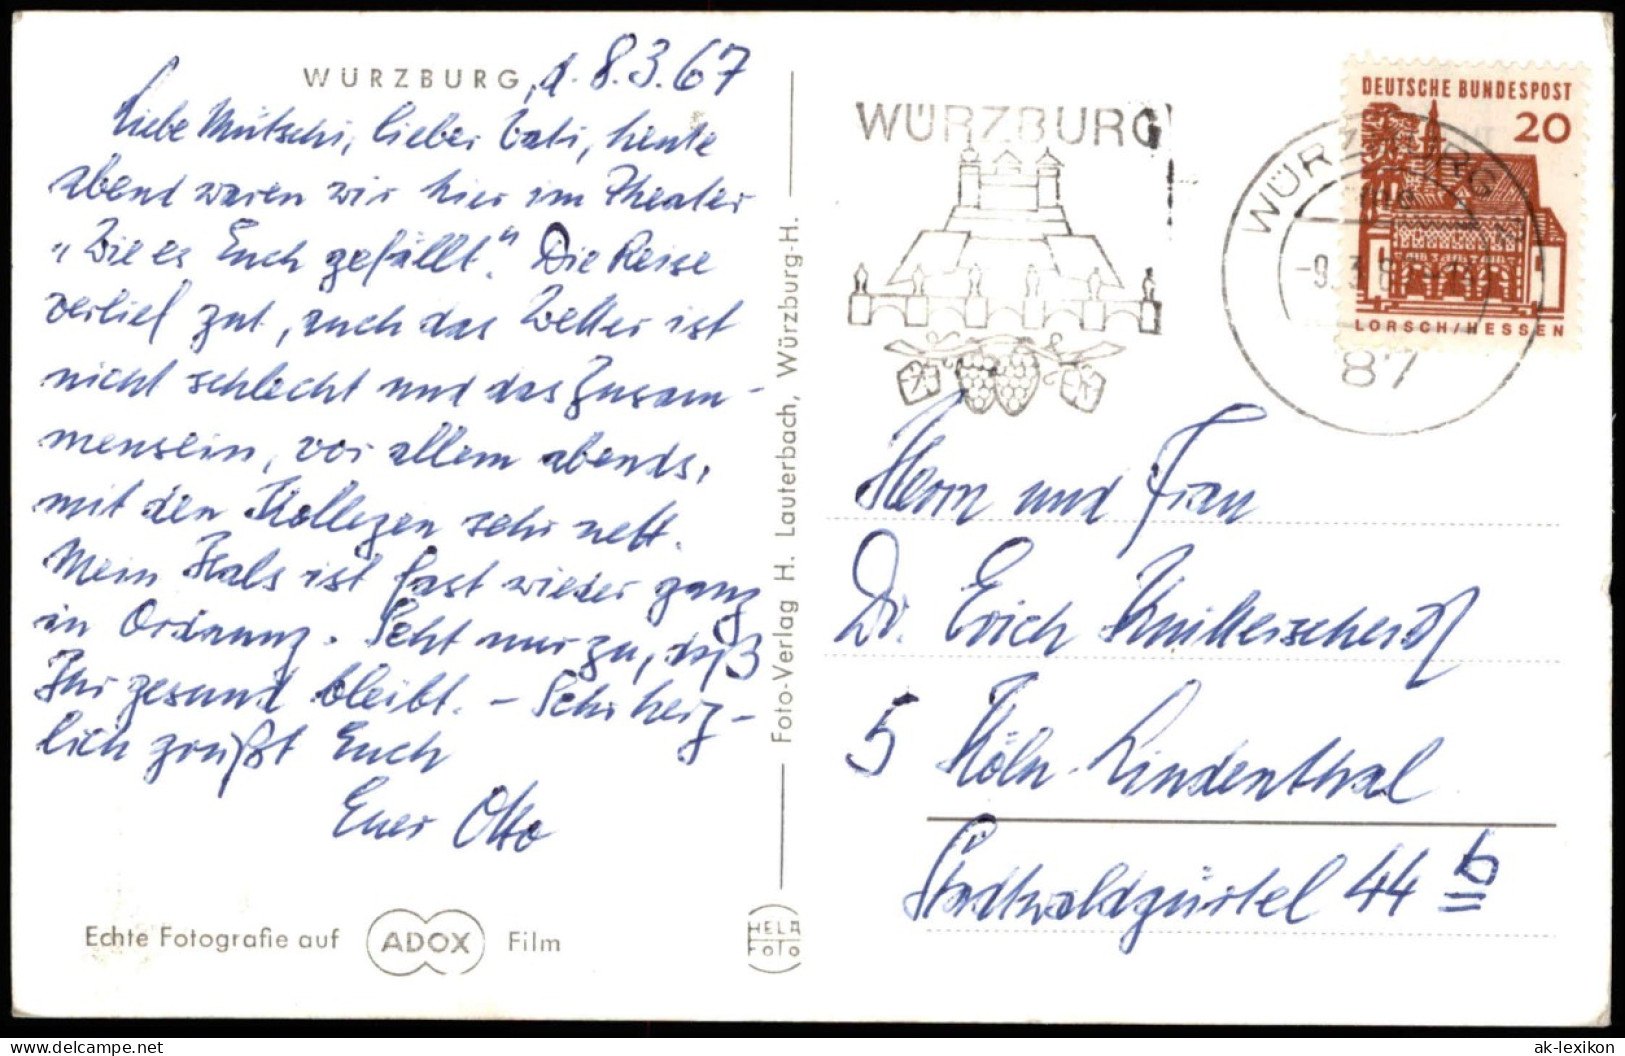 WÜRZBURG, d. 8.3.67
Liebe Mutschi, lieber Vati, heute
abend waren wir hier im Theater
„Wie es Euch gefällt". Die Reise
verlief gut, auch das Wetter ist
nicht schlecht und das Zusam-
mensein, vor allem abends,
mit den Kollegen sehr nett.
Mein Hals ist fast wieder ganz
in Ordnung. Seht nur zu, daß
Ihr gesund bleibt. – Sehr herz-
lich grüßt Euch
Euer Otto
Echte Fotografie auf ADOX Film
HELA
FOTO
Foto-Verlag H. Lauterbach, Würzburg-H.
WÜRZBURG
WÜRZBURG
-9.3.67
87
DEUTSCHE BUNDESPOST
20
LORSCH/HESSEN
Herrn und Frau
Dr. Erich
5 Köln-Lindenthal
Stadtwaldgürtel 44 b
ak-lexikon
delcampe.net